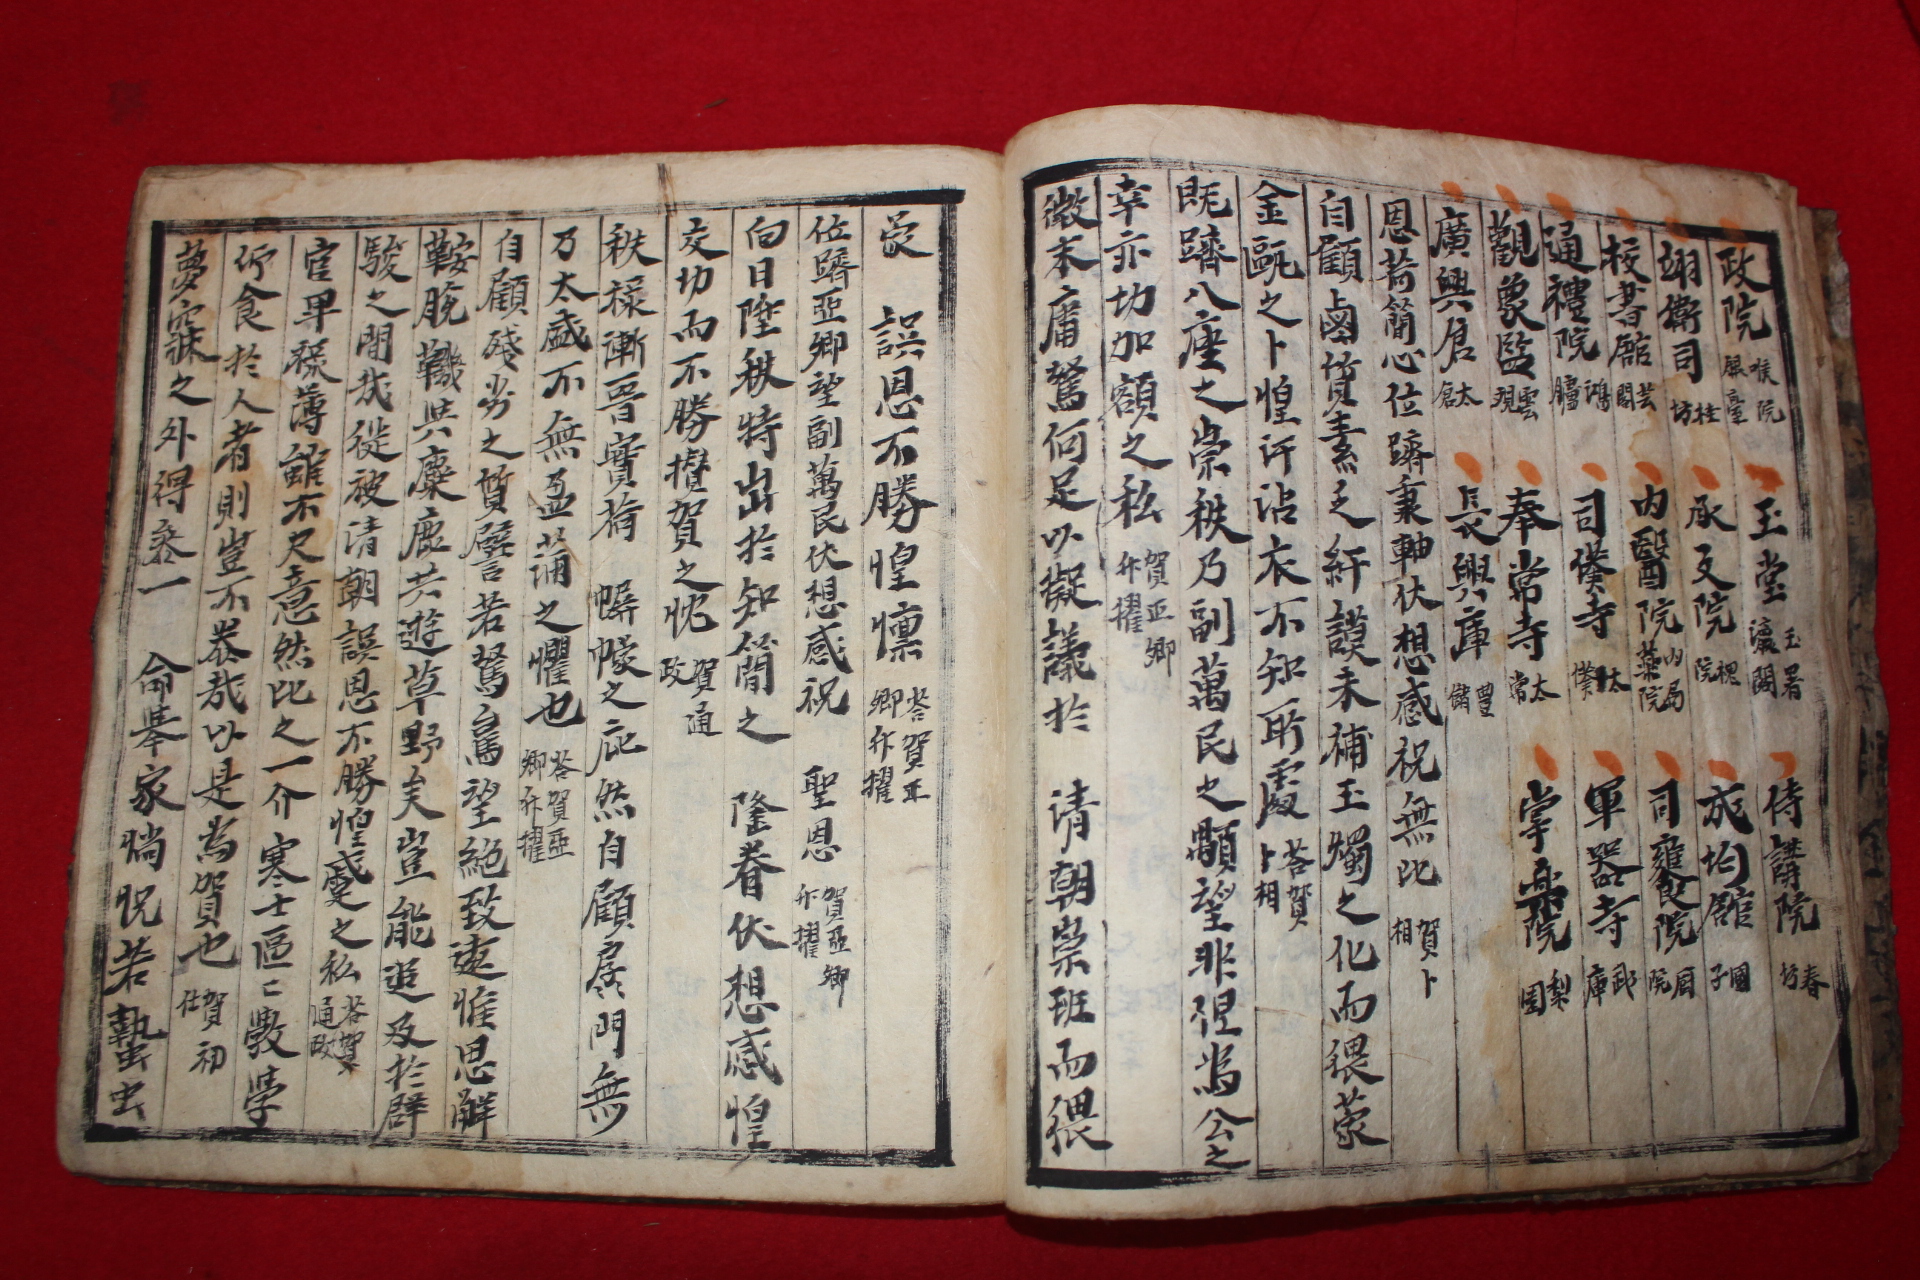 政院 喉院 銀臺 玉堂 玉署 瀛閣 侍講院 春坊
翊衛司 桂坊 承文院 槐院 成均舘 國子
校書舘 芸閣 內醫院 內局 藥院 司饔院 厨院
通禮院 鴻臚 司僕寺 太僕 軍器寺 武庫
觀象監 雲觀 奉常寺 太常 掌樂院 梨園
廣興倉 太倉 長興庫 豊儲
恩荷簡心位躋秉軸伏想感祝無比 賀卜相
自顧鹵質素乏訏謨未補玉燭之化而猥蒙
金甌之卜惶汗沾衣不知所處 答賀卜相
既躋八座之崇秩乃副萬民之顒望非但爲公之
幸亦切加額之私 賀亞卿升擢
微本庸駑何足以擬議於 淸朝崇班而猥
蒙 誤恩不勝惶懍 答賀亞卿升擢
位躋亞卿望副萬民伏想感祝 聖恩 賀亞卿升擢
向日陞秩特出於知簡之 隆眷伏想感惶
交切而不勝攢賀之忱 賀通政
秩祿漸晉實荷 帡幪之庇然自顧房門無
乃太盛不無盈滿之懼也 答賀亞卿升擢
自顧殘劣之質譬若駑駘望絶致遠惟思解
鞍脫羈與麋鹿共遊草野矣豈能追及於群
駿之間哉從被清朝誤恩不勝惶蹙之私 答賀通政
官卑祿薄雖不尺意然比之一介寒士區〻斅學
仰食於人者則豈不泰哉以是爲賀也 賀初仕
夢寐之外得叅一 命擧家惝怳若蟄虫